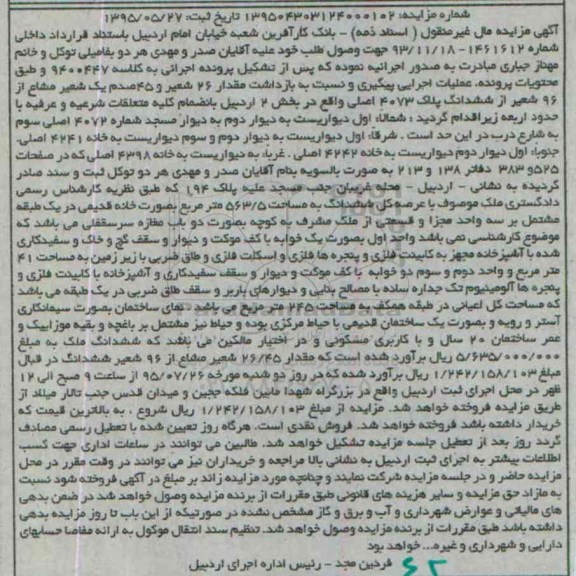 شماره مزایده: ۱۳۹۵۰۴۳۰۳۱۲۴۰۰۰۱۰۲ تاریخ ثبت: ۱۳۹۵/۰۵/۲۷
آگهی مزایده مال غیرمنقول ( اسناد ذمه) - بانک کارآفرین شعبه خیابان امام اردبیل باستناد قرارداد داخلی
شماره ۱۴۶۱۶۱۲- ۹۳/۱۱/۱۸ جهت وصول طلب خود علیه آقایان صدر و مهدی هر دو بفامیلی توکل و خانم
مهناز جباری مبادرت به صدور اجرائیه نموده که پس از تشکیل پرونده اجرائی به کلاسه ۹۴۰۰۴۴۷ و طبق
محتویات پرونده، عملیات اجرایی پیگیری و نسبت به بازداشت مقدار ۲۶ شعیر و ۴۵صدم یک شعیر مشاع از
۹۶ شعیر از ششدانگ پلاک ۴۰۷۳ اصلی واقع در بخش ۲ اردبیل بانضمام کلیه متعلقات شرعیه و عرفیه با
حدود اربعه زیراقدام گردید : شمالا: اول دیواریست به دیوار دوم به دیوار مسجد شماره ۴۰۷۲ اصلی سوم
به شارع درب در این حد است . شرقا: اول دیواریست به دیوار دوم و سوم دیواریست به خانه ۴۲۴۱ اصلی.
جنوبا: اول دیوار دوم دیواریست به خانه ۴۲۴۲ اصلی . غربا: به دیواریست به خانه ۴۳۹۸ اصلی که در صفحات
۵۲۵و ۳۸۳ دفاتر ۱۳۸ و ۲۱۳ به صورت بالسویه بنام آقایان صدر و مهدی هر دو توکل ثبت و سند صادر
گردیده به نشانی - اردبیل - محله عباسیان جنب مسجد علیه پلاک ۱۹۴ که طبق نظریه کارشناس رسمی
دادگستری ملک موصوف با عرصه کل ششدانگ به مساحت ۵۶۳/۵ متر مربع بصورت خانه قدیمی در یک طبقه
مشتمل بر سه واحد مجزا و قسمتی از ملک مشرف به کوچه بصورت دو باب مغازه سرسقفلی می باشد که
موضوع کارشناسی نمی باشد واحد اول بصورت یک خوابه با کف موکت و دیوار و سقف گچ و خاک و سفیدکاری
شده با آشپزخانه مجهز به کابینت فلزی و پنجره ها فلزی و اسکلت فلزی و طاق ضربی با زیر زمین به مساحت ۴۱
متر مربع و واحد دوم و سوم دو خوابه با کف موکت و دیوار و سقف سفیدکاری و آشپزخانه با کابینت فلزی و
پنجره ها آلومینیوم تک جداره ساده با مصالح بنایی و دیوارهای باربر و سقف طاق ضربی در یک طبقه می باشد
که مساحت کل اعیانی در طبقه همکف به مساحت ۲۴۵ متر مربع می باشد . نمای ساختمان بصورت سیمانکاری
آستر و رویه و بصورت یک ساختمان قدیمی با حیاط مرکزی بوده و حیاط نیز مشتمل بر باغچه و بقیه موزاییک و
عمر ساختمان ۲۰ سال و با کاربری مسکونی و در اختیار مالکین می باشد که ششدانگ ملک به مبلغ
۵/۶۳۵/۰۰۰/۰۰۰ ریال برآورد شده است که مقدار ۲۶/۴۵ شعیر مشاع از ۹۶ شعیر ششدانگ در قبال
مبلغ ۱/۲۴۲/۱۵۸/۱۰۳ ریال برآورد شده که در روز دو شنبه مورخه ۹۵/۰۷/۲۶ از ساعت ۹ صبح الی ۱۲
ظهر در محل اجرای ثبت اردبیل واقع در بزرگراه شهدا مابین فلکه ججین و میدان قدس جنب تالار میلاد از
طریق مزایده فروخته خواهد شد. مزایده از مبلغ ۱/۲۴۲/۱۵۸/۱۰۳ ریال شروع . به بالاترین قیمت که
خریدار داشته باشد فروخته خواهد شد. فروش نقدی است. هرگاه روز تعیین شده با تعطیل رسمی مصادف
گردد روز بعد از تعطیل جلسه مزایده تشکیل خواهد شد. طالبین می توانند در ساعات اداری جهت کسب
اطلاعات بیشتر به اجرای ثبت اردبیل به نشانی بالا مراجعه و خریداران نیز می توانند در وقت مقرر در محل
مزایده حاضر و در جلسه مزایده شرکت نمایند و چنانچه مورد مزایده زائد بر مبلغ در آگهی فروخته شود نسبت
به مازاد حق مزایده و سایر هزینه های قانونی طبق مقررات از برنده مزایده وصول خواهد شد در ضمن بدهی
های مالیاتی و عوارض شهرداری و آب و برق و گاز مشخص نشده در صورتیکه از این باب تا روز مزایده بدهی
داشته باشد طبق مقررات از برنده مزایده وصول خواهد شد. تنظیم سند انتقال موکول به ارائه مفاصا حسابهای
دارایی و شهرداری و غیره... خواهد بود
فردین مجد - رئیس اداره اجرای اردبیل
۶۲